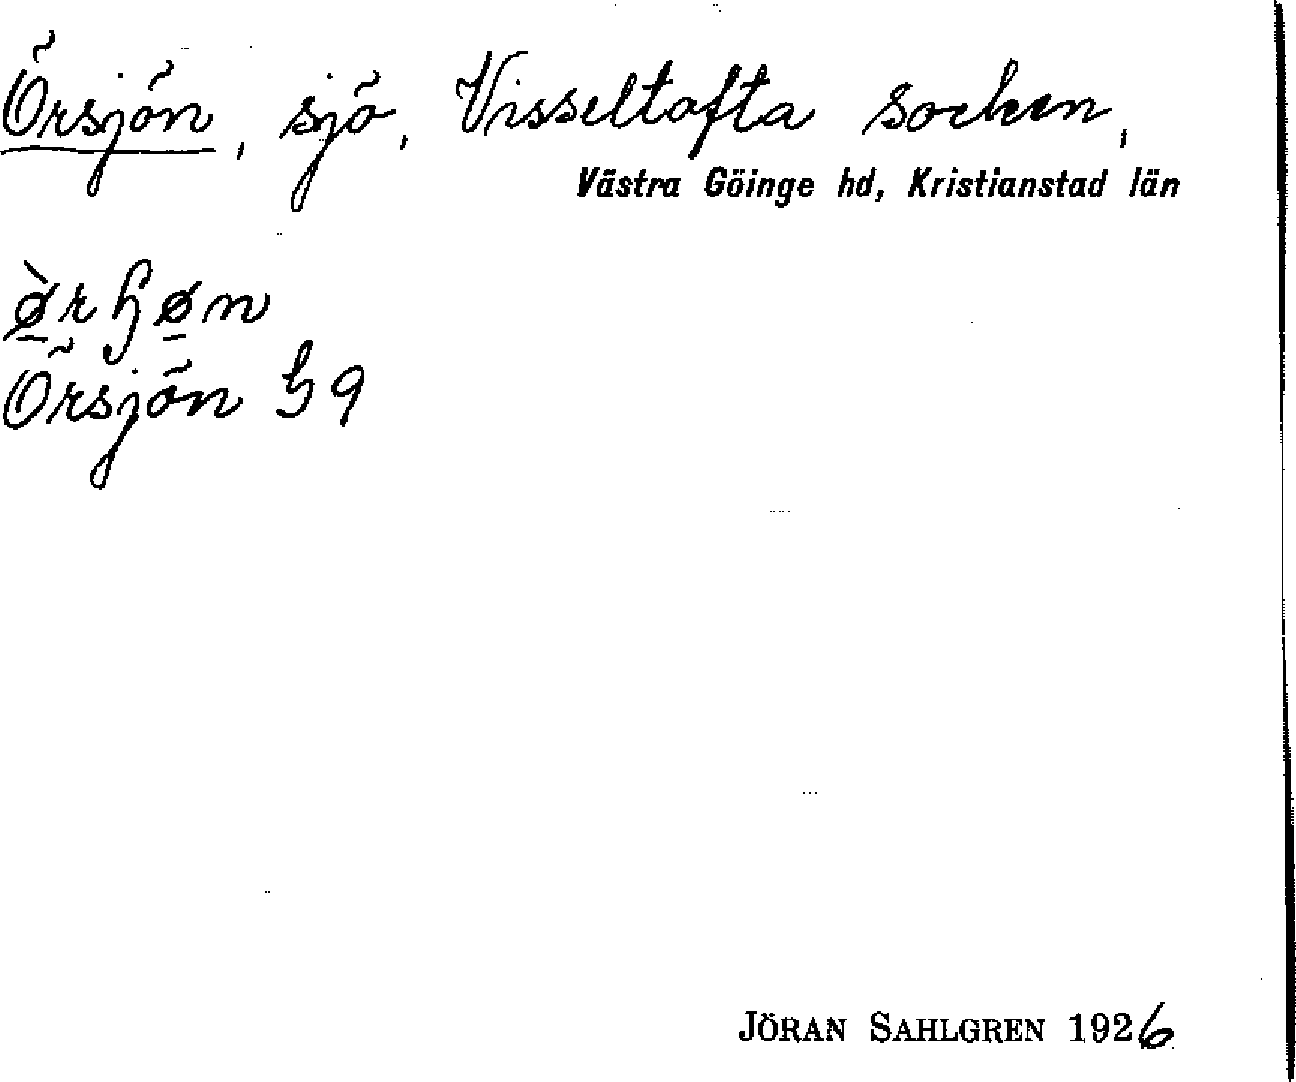 Örsjön, sjö, Visseltofta socken,
Västra Göinge hd, Kristianstad län
ø̲̀rɧø̲n
Örsjön G 9
JÖRAN SAHLGREN 1926